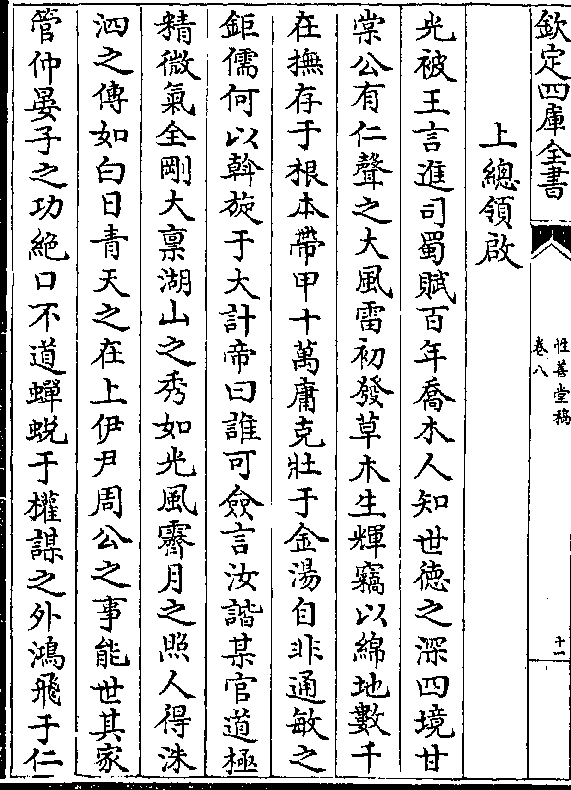 欽定四庫全書
性善堂稿
卷八
十一
上總領啟
光被王言進司蜀賦百年喬木人知世德之深四境甘
棠公有仁聲之大風雷初發草木生輝竊以綿地數千
在撫存于根本帶甲十萬庸克壯于金湯自非通敏之
鉅儒何以斡旋于大計帝曰誰可僉言汝諧某官道極
精微氣全剛大稟湖山之秀如光風霽月之照人得洙
泗之傳如白日青天之在上伊尹周公之事能世其家
管仲晏子之功絶口不道蟬蛻于權謀之外鴻飛于仁